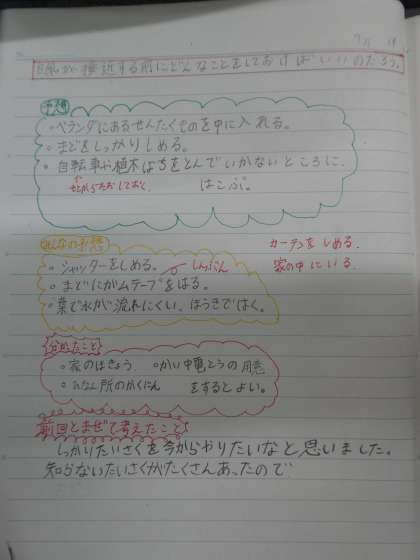 台風が接近する前にどんなことをしておけばいいのだろう。
予想
・ベランダにあるせんたくものを中に入れる。
・まどをしっかりしめる。
・自転車や植木ばちをとんでいかないところに、
はこぶ。
みんなの予想
カーテンをしめる。
・シャッターをしめる。
しんぶん
家の中にいる。
・まどにガムテープをはる。
・葉で水が流れにくい、ほうきではく。
分かったこと
・家のほきょう ・かい中電とうの用意
・ひなん所のかくにん をするとよい。
前回とまぜて考えたこと
しっかりたいさくを今からやりたいなと思いました。
知らないたいさくがたくさんあったので